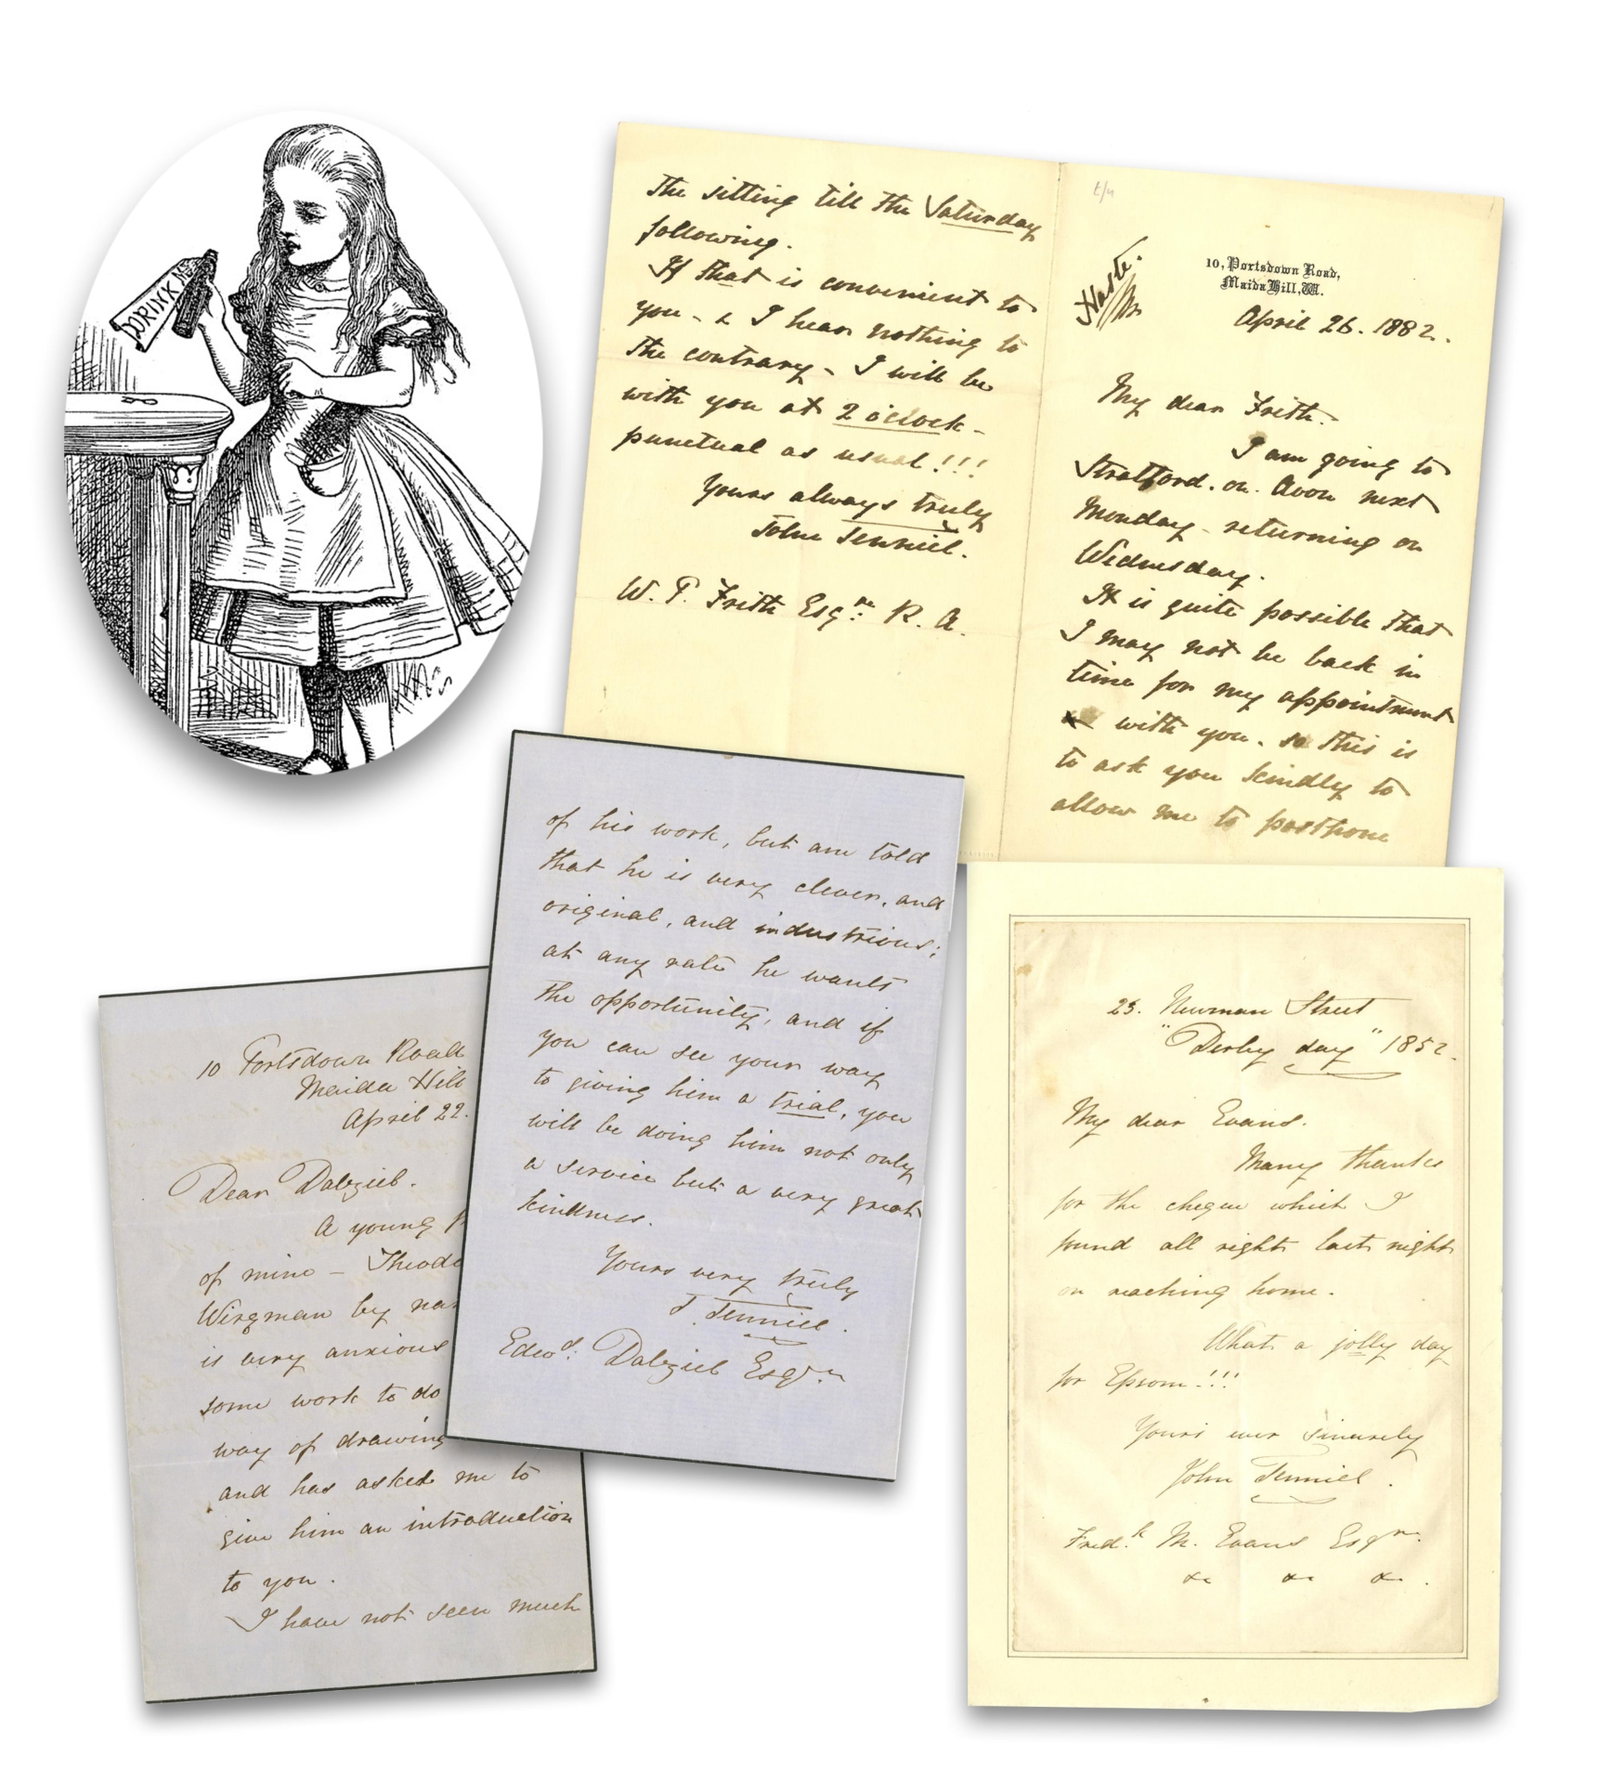 DRINK ME
the sitting till the Saturday
following.
If that is convenient to
you - & I hear nothing to
the contrary - I will be
with you at 2 o'clock -
punctual as usual!!!
Yours always truly
John Tenniel.
W. P. Frith Esqre. R. A.
Haste.
10, Portsdown Road,
Maida Hill, W.
April 26. 1882.
My dear Frith.
I am going to
Stratford. on. Avon next
Monday - returning on
Wednesday.
It is quite possible that
I may not be back in
time for my appointment
with you. so this is
to ask you kindly to
allow me to postpone
10 Portsdown Road
Maida Hill
April 22.
Dear Dalziel.
A young
of mine - Theodo
Wirgman by nam
is very anxious
some work to do
way of drawing
and has asked me to
give him an introduction
to you.
I have not seen much
of his work, but am told
that he is very clever, and
original, and industrious;
at any rate he wants
the opportunity, and if
you can see your way
to giving him a trial, you
will be doing him not only
a service but a very great
kindness.
Yours very truly
J. Tenniel.
Edwd. Dalziel Esqre
23. Newman Street
"Derby day" 1852.
My dear Evans.
Many thanks
for the cheque which I
found all right last night
on reaching home.
What a jolly day
for Epsom!!!
Yours ever sincerely
John Tenniel.
Fredk. M. Evans Esqre.
&c &c &c.